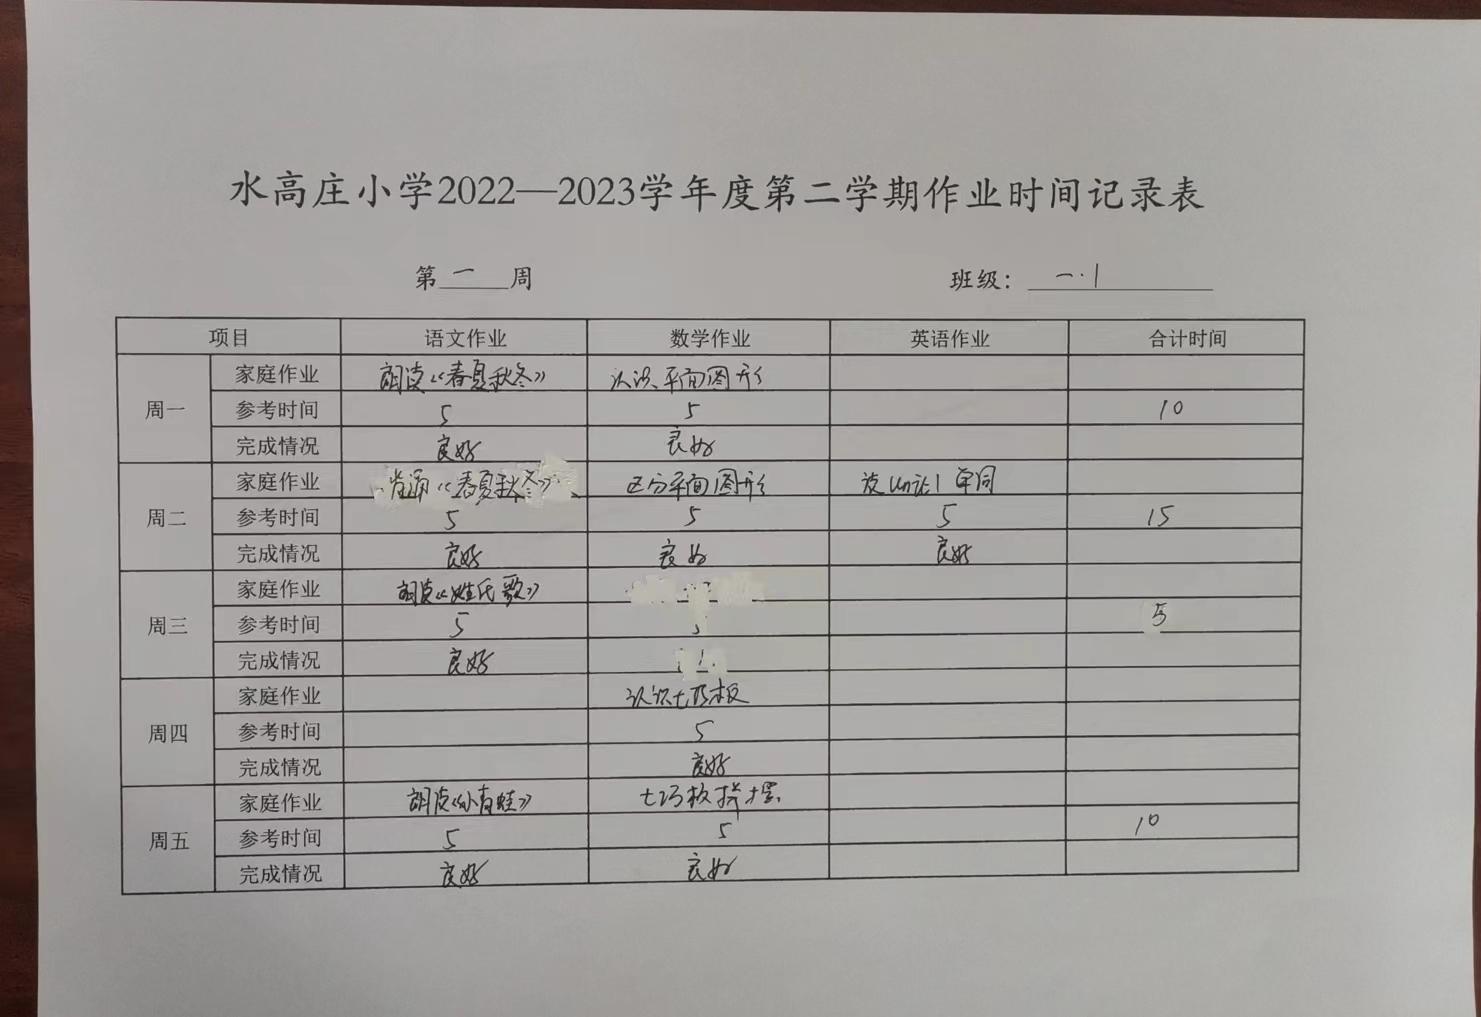 水高庄小学2022—2023学年度第二学期作业时间记录表
第一周 班级：一.1
项目 语文作业 数学作业 英语作业 合计时间
周一 家庭作业 朗读《春夏秋冬》 认识平面图形
参考时间 5 5 10
完成情况 良好 良好
周二 家庭作业 背诵《春夏秋冬》 区分平面图形 读Unit1单词
参考时间 5 5 5 15
完成情况 良好 良好 良好
周三 家庭作业 朗读《姓氏歌》
参考时间 5 5
完成情况 良好
周四 家庭作业 认识七巧板
参考时间 5
完成情况 良好
周五 家庭作业 朗读《小青蛙》 七巧板拼摆
参考时间 5 5 10
完成情况 良好 良好